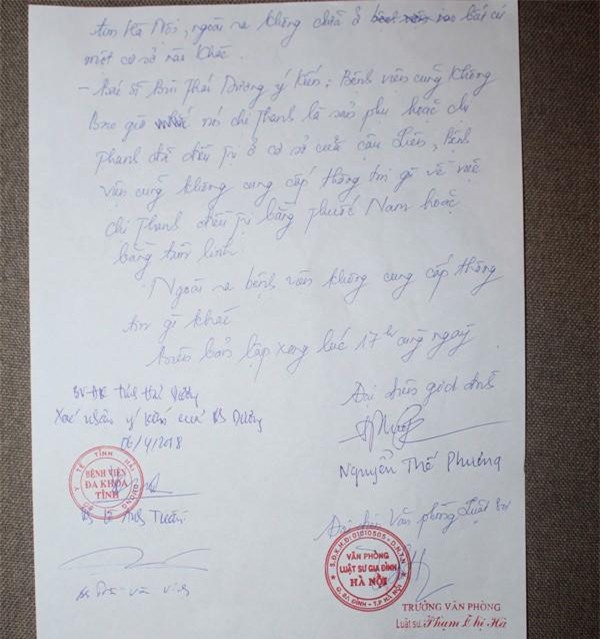 tim Hà Nội, ngoài ra không chữa ở bất cứ
một cơ sở nào khác.
- Bác sĩ Bùi Thái Dương ý kiến: Bệnh viện cũng không
bao giờ nói chị Thanh là sản phụ hoặc chị
Thanh đã điều trị ở cơ sở cuối cậu Liên, Bệnh
viện cũng không cung cấp thông tin gì về việc
chị Thanh điều trị bằng thuốc Nam hoặc
bằng tâm linh.
Ngoài ra bệnh viện không cung cấp thông
tin gì khác
Biên bản lập xong lúc 17h cùng ngày
BV ĐK tỉnh Hải Dương
Xác nhận ý kiến của BS Dương
06/4/2018
Y TẾ TỈNH HẢI DƯƠNG
BỆNH VIỆN
ĐA KHOA
TỈNH
BS Lê Anh Tuấn
Đại diện gia đình
Nguyễn Thế Phương
Đại diện Văn phòng Luật sư
VĂN PHÒNG
LUẬT SƯ GIA ĐÌNH
HÀ NỘI
Q. BA ĐÌNH - T.P HÀ NỘI
TRƯỞNG VĂN PHÒNG
Luật sư: Phạm Thị Hà